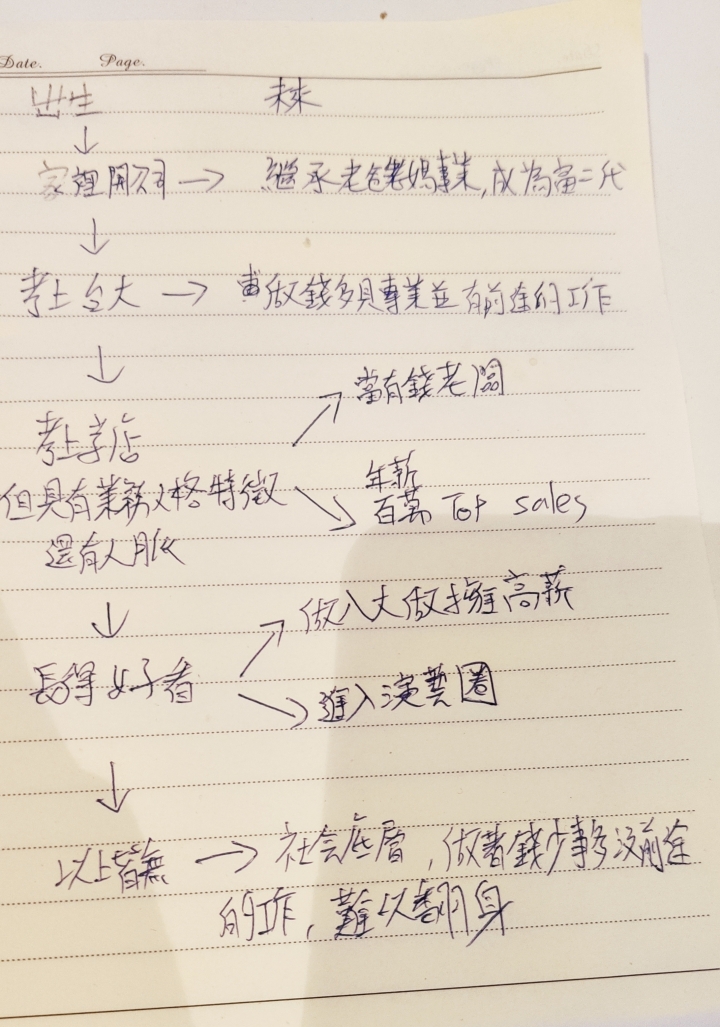 Date. Page.
出生 未來
↓
家裡開公司 → 繼承老爸老媽事業,成為富二代
↓
考上台大 → 做錢多具專業並有前途的工作
↓
當有錢老闆
考上学店
但具有業務人格特徵
年薪
百萬 Top sales
還有人脈
↓
做八大做擁高薪
長得好看
進入演藝圈
↓
以上皆無 → 社会底層,做著錢少事多沒前途
的工作,難以翻身